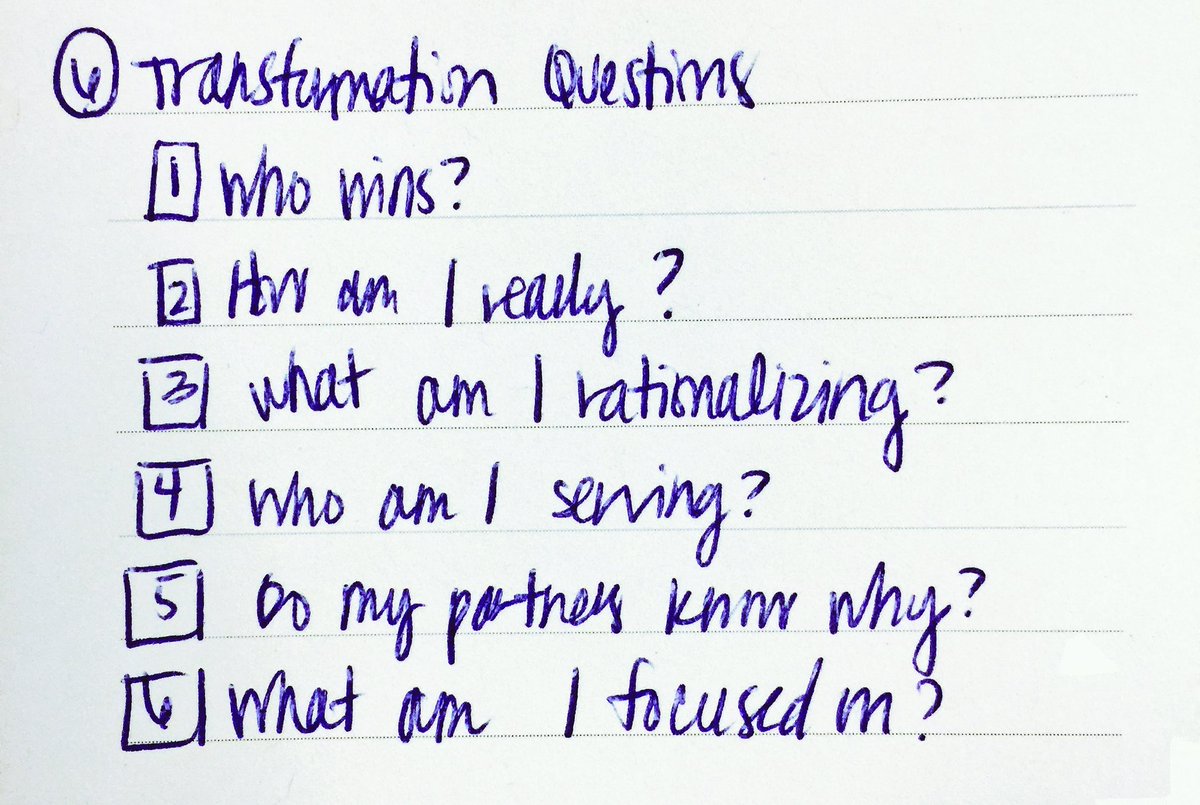 6 Transformation Questions
1 Who wins?
2 How am I really?
3 What am I rationalizing?
4 Who am I serving?
5 Do my partners know why?
6 What am I focused on?